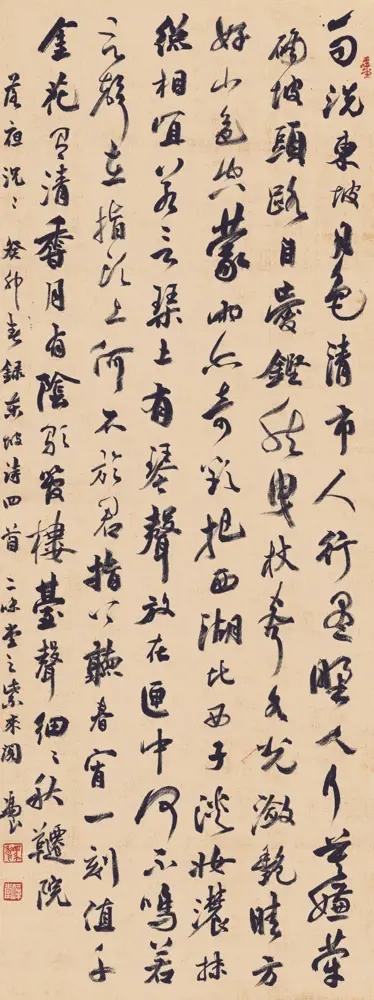 雨洗東坡月色清市人行盡野人行莫嫌犖
确坡頭路自愛鏗然曳杖聲水光瀲艷晴方
好山色空蒙雨亦奇欲把西湖比西子淡妝濃抹
總相宜若言琴上有琴聲放在匣中何不鳴若
言聲在指頭上何不於君指上聽春宵一刻值千
金花有清香月有陰歌管樓臺聲細〻秋韆院
落夜沉〻 癸卯春錄東坡詩四首 二味堂之紫來閣